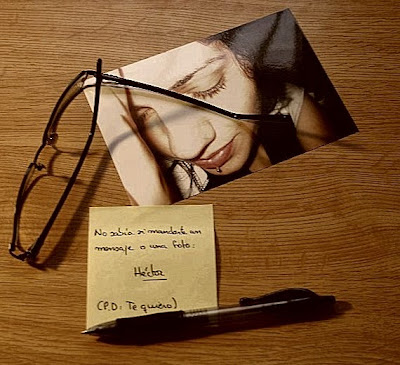 No sabía si mandarte un
mensaje o una foto:
Héctor
(P.D: Te quiero)